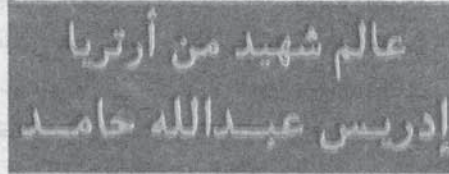 عالم شهيد من أرتريا
إدريس عبدالله حامد